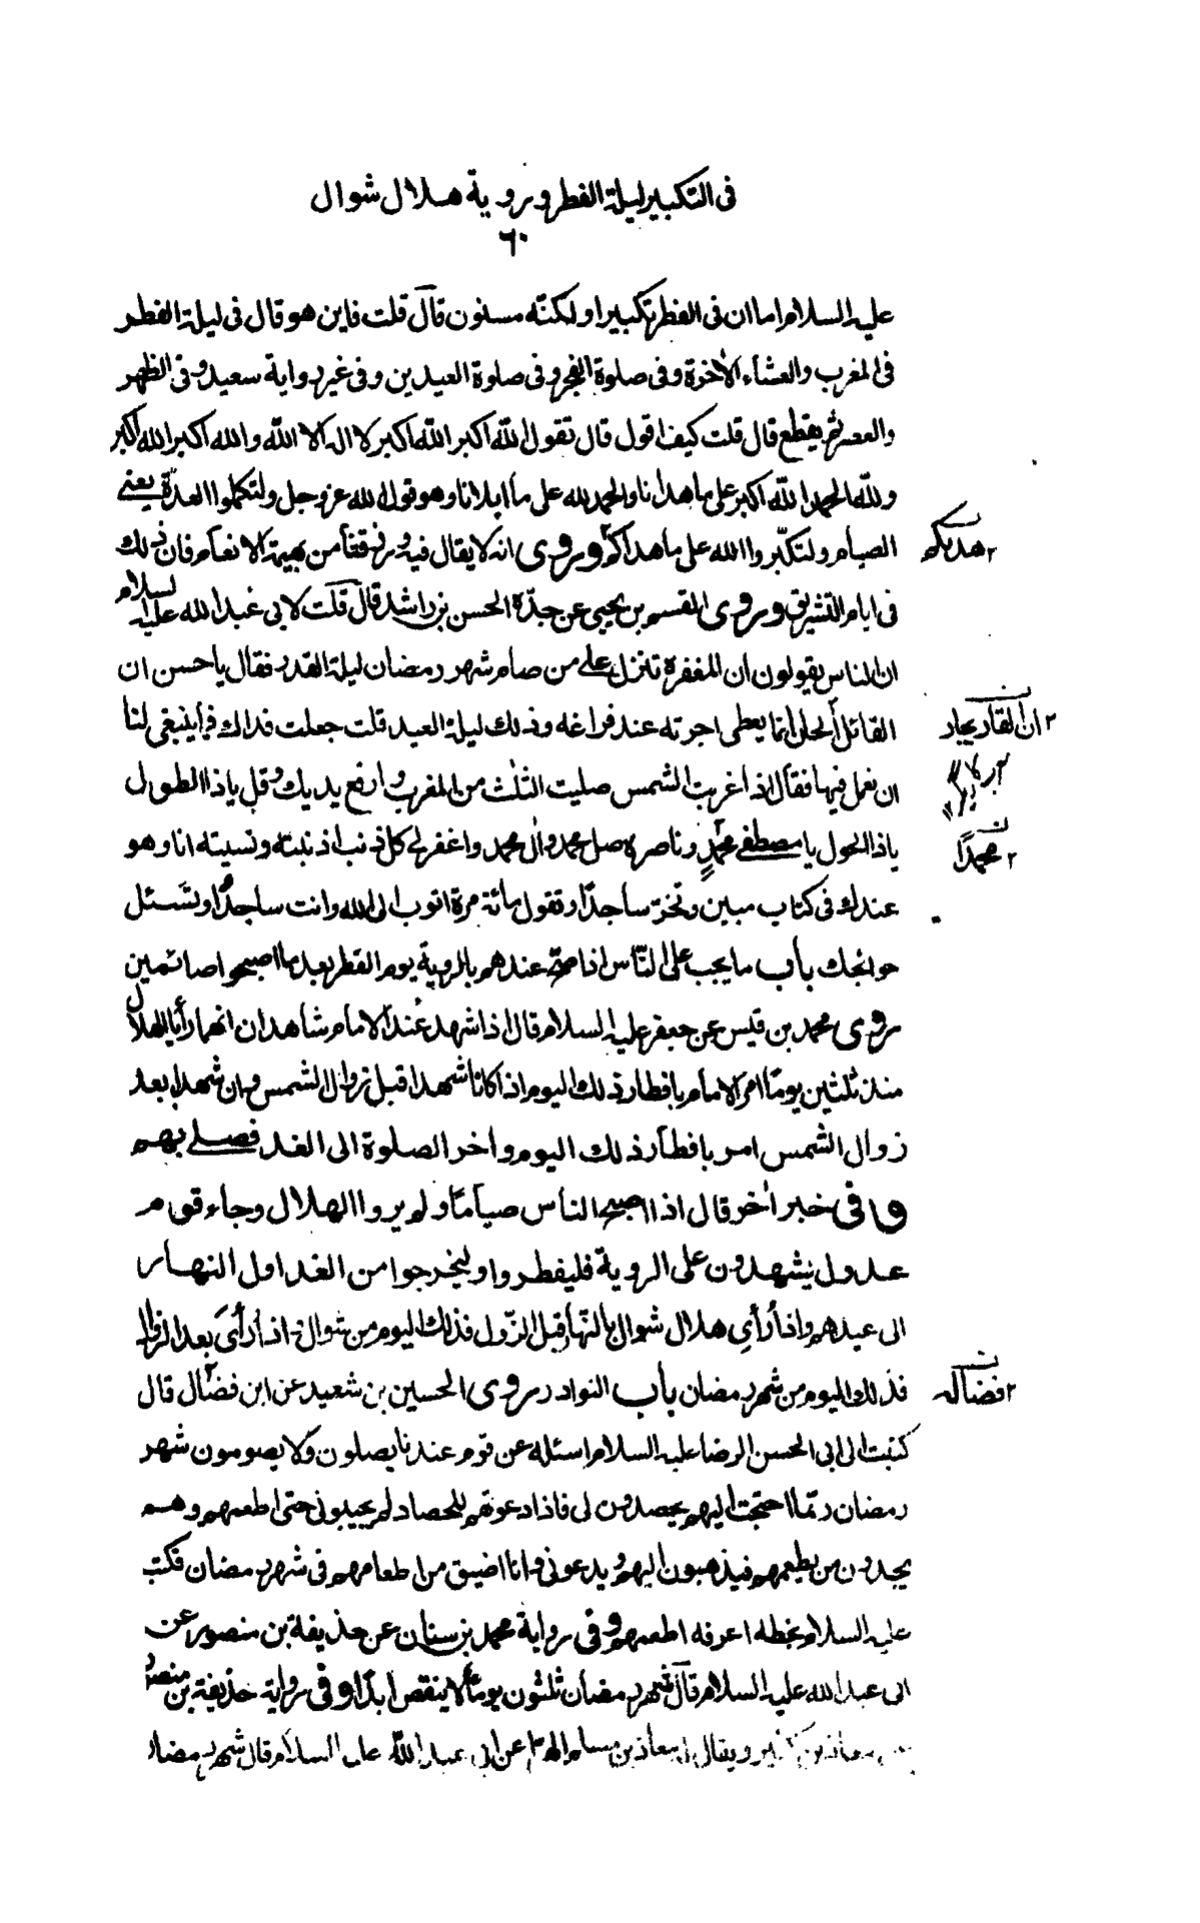 فى التكبير ليلة الفطر وروية هلال شوال
٦٠
عليه السلام اما ان فى الفطر تكبيرا ولكنّه مسنون قال قلت فاين هو قال فى ليلة الفطر
فى المغرب والعشاء الاخرة وفى صلوة الفجر وفى صلوة العيدين وفى غير رواية سعيد وفى الظهر
والعصر ثم يقطع قال قلت كيف اقول قال تقول الله اكبر الله اكبر لا اله الا الله والله اكبر الله اكبر
ولله الحمد الله اكبر على ما هدانا والحمد لله على ما ابلانا وهو قول الله عز وجل ولتكملوا العدّة يعنى
الصيام ولتكبّروا الله على ما هداكم وروى انه لا يقال فيه ورزقنا من بهيمة الانعام فان ذلك
٢ هديكم
فى ايام التشريق وروى القسم بن يحيى عن جدّه الحسن بن راشد قال قلت لابى عبد الله عليه السلام
ان الناس يقولون ان المغفرة تنزل على من صام شهر رمضان ليلة القدر فقال يا حسن ان
القائل لحان انما يعطى اجرته عند فراغه وذلك ليلة العيد قلت جعلت فداك فما ينبغى لنا
٢ ان القاريجار
ان نعمل فيها فقال اذا غربت الشمس صليت الثلث من المغرب وارفع يديك وقل يا ذا الطول
يا ذا الحول يا مصطفى محمدٍ وناصره صل على محمد وال محمد واغفر لى كل ذنب اذنبته ونسيته انا وهو
٢ محمدًا
عندك فى كتاب مبين وتخرّ ساجدًا وتقول مائة مرة اتوب الى الله وانت ساجدٌ وتسئل
حوائجك باب ما يجب على النّاس اذا صحّ عندهم بالروية يوم الفطر بعد ما اصبحوا صائمين
روى محمد بن قيس عن جعفر عليه السلام قال اذا شهد عند الامام شاهدان انهما رأيا الهلال
منذ ثلثين يومًا امر الامام بافطار ذلك اليوم اذا كانا شهدا قبل زوال الشمس وان شهدا بعد
زوال الشمس امر بافطار ذلك اليوم واخر الصلوة الى الغد فصلى بهم
وفى خبر اخر قال اذا اصبح الناس صيامًا ولم يروا الهلال وجاء قوم
عدول يشهدون على الروية فليفطروا وليخرجوا من الغد اول النهار
الى عيدهم واذا رأى هلال شوال بالنّهار قبل الزّول فذلك اليوم من شوال واذا رأى بعد الزوال
فذلك اليوم من شهر رمضان باب النوادر روى الحسين بن سعيد عن ابن فضّال قال
٢ فضاله
كتبت الى ابى الحسن الرضا عليه السلام اسئله عن قوم عندنا يصلون ولا يصومون شهر
رمضان ربّما احتجت اليهم يحصدون لى فاذا دعوتهم للحصاد لم يجيبونى حتى اطعمهم وهم
يجدون من يطعمهم فيذهبون اليهم ويدعونى وانا اضيق من اطعامهم فى شهر رمضان فكتب
عليه السلام بخطه اعرفه اطعمهم وفى رواية محمد بن سنان عن حذيفة بن منصور عن
ابى عبد الله عليه السلام قال شهر رمضان ثلثون يومًا لا ينقص ابدًا وفى رواية حذيفة بن منصور
معاذ بن كثير ويقال له معاذ بن مسلم الهرا عن ابى عبد الله عليه السلام قال شهر رمضان